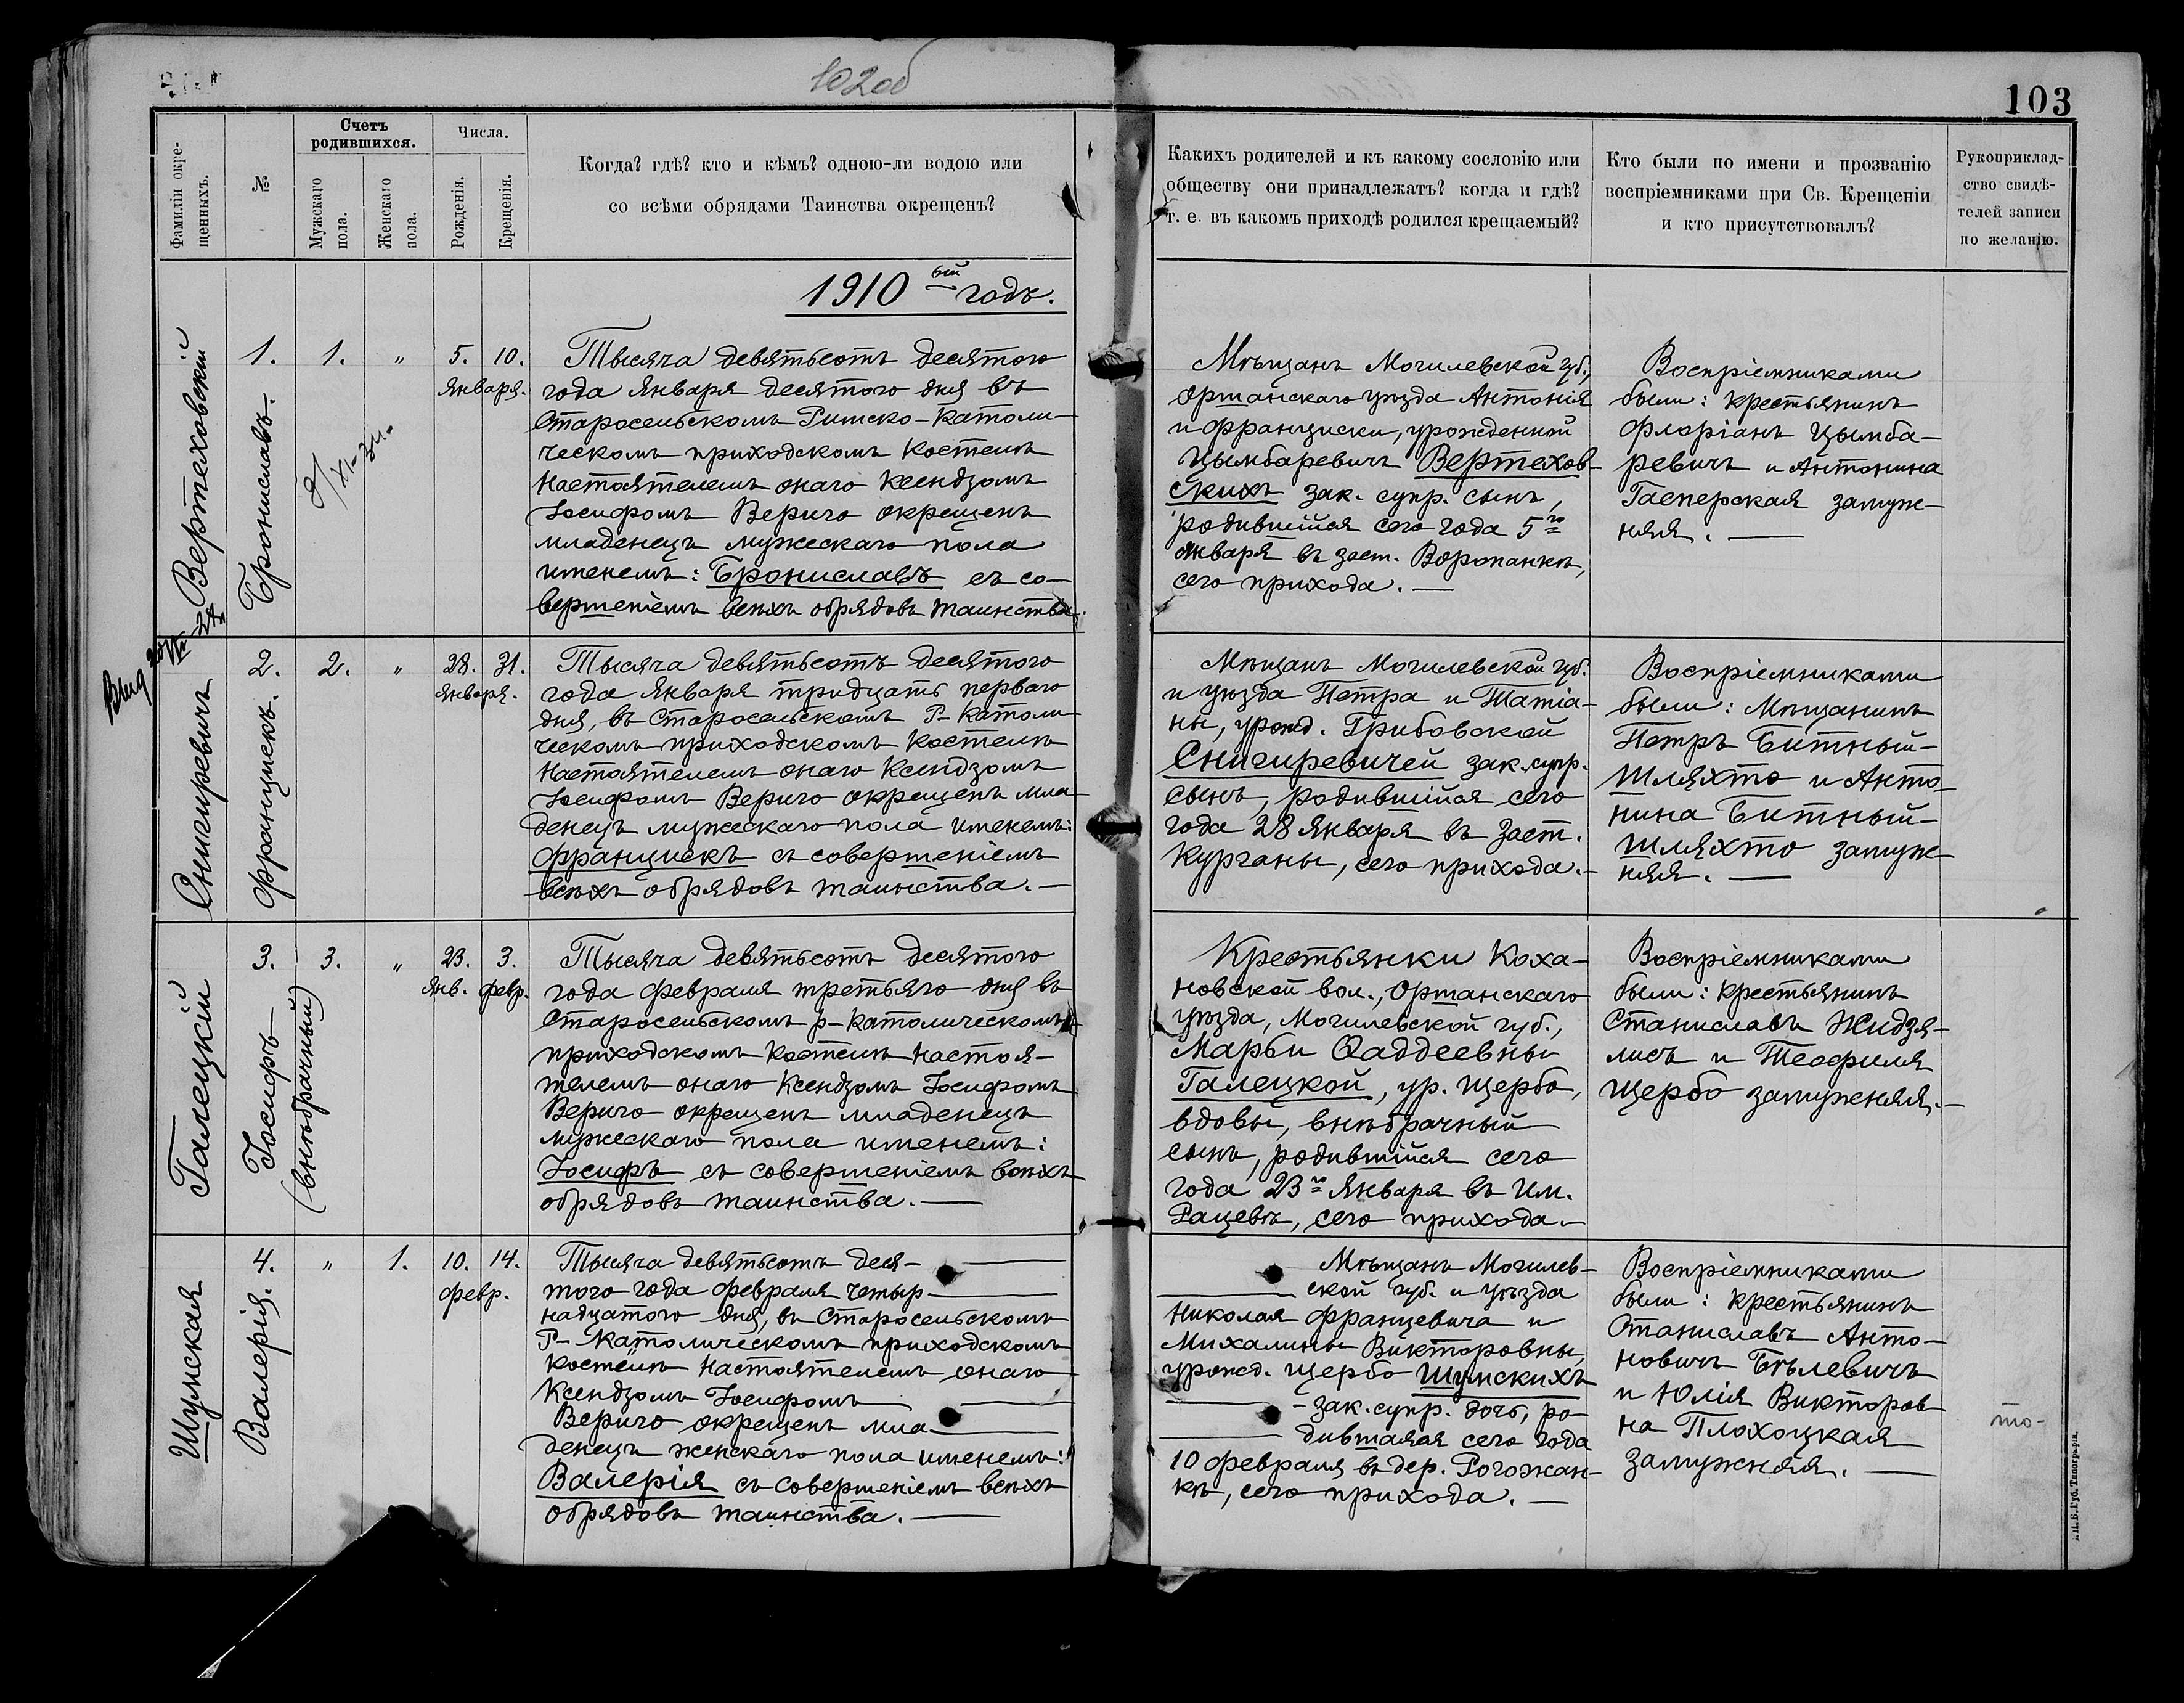 102об
103
Фамиліи окре-
щенныхъ.
№
Счетъ
родившихся.
Мужскаго
пола.
Женскаго
пола.
Числа.
Рожденія.
Крещенія.
Когда? гдѣ? кто и кѣмъ? одною-ли водою или
со всѣми обрядами Таинства окрещенъ?
Какихъ родителей и къ какому сословію или
обществу они принадлежатъ? когда и гдѣ?
т. е. въ какомъ приходѣ родился крещаемый?
Кто были по имени и прозванію
воспріемниками при Св. Крещеніи
и кто присутствовалъ?
Рукоприклад-
ство свидѣ-
телей записи
по желанію.
1910 ый годъ.
Вертеховскій
1.
Брониславъ.
1.
"
5. 10.
Января.
Тысяча девятьсотъ десятого
года Января десятого дня въ
Старосельскомъ Римско-Католи-
ческомъ приходскомъ костелѣ
Настоятелемъ онаго Ксендзомъ
Іосифомъ Верыго окрещенъ
младенецъ мужескаго пола
именемъ: Брониславъ съ со-
вершеніемъ всѣхъ обрядовъ таинства.
Мѣщанъ Могилевской губ.,
Оршанскаго уѣзда Антонія
и Франциски, урожденной
Цымбаревичъ Вертехов-
скихъ зак. супр. сынъ,
родившійся сего года 5го
Января въ заст. Воропанкѣ,
сего прихода. —
Воспріемниками
были: крестьянинъ
Флоріанъ Цымба-
ревичъ и Антонина
Гасперская замуж-
няя. —
Снигиревичъ
2.
Францишекъ.
2.
"
28. 31.
Января.
Тысяча девятьсотъ десятого
года Января тридцать перваго
дня, въ Старосельскомъ Р-Католи-
ческомъ приходскомъ костелѣ
Настоятелемъ онаго Ксендзомъ
Іосифомъ Верыго окрещенъ мла-
денецъ мужескаго пола именемъ:
Францискъ съ совершеніемъ
всѣхъ обрядовъ таинства. —
Мѣщанъ Могилевской губ.
и уѣзда Петра и Татіа-
ны, урожд. Грибовской
Снигиревичей зак. супр.
сынъ, родившійся сего
года 28 Января въ заст.
Курганы, сего прихода. —
Воспріемниками
были: Мѣщанинъ
Петръ Битный-
Шляхто и Анто-
нина Битный-
Шляхто замуж-
няя. —
Галецкій
3.
Іосифъ
(внѣбрачный)
3.
"
23. 3.
Янв. февр.
Тысяча девятьсотъ десятого
года февраля третьяго дня въ
Старосельскомъ р-католическомъ
приходскомъ костелѣ настоя-
телемъ онаго Ксендзомъ Іосифомъ
Верыго окрещенъ младенецъ
мужескаго пола именемъ:
Іосифъ съ совершеніемъ всѣхъ
обрядовъ таинства. —
Крестьянки Коха-
новской вол., Оршанскаго
уѣзда, Могилевской губ.,
Марьи Ѳаддеевны
Галецкой, ур. Щербо,
вдовы, внѣбрачный
сынъ, родившійся сего
года 23го Января въ им.
Рацевѣ, сего прихода. —
Воспріемниками
были: крестьянинъ
Станиславъ Жидзя-
лисъ и Теофиля
Щербо замужняя. —
Шумская
4.
Валерія.
"
1.
10. 14.
февр.
Тысяча девятьсотъ деся-
того года февраля четыр-
надцатого дня, въ Старосельскомъ
Р-Католическомъ приходскомъ
костелѣ Настоятелемъ онаго
Ксендзомъ Іосифомъ
Верыго окрещенъ мла-
денецъ женскаго пола именемъ:
Валерія съ совершеніемъ всѣхъ
обрядовъ таинства. —
Мѣщанъ Могилев-
ской губ. и уѣзда
Николая Францевича и
Михалины Викторовны,
урожд. Щербо Шумскихъ
- зак. супр. дочь, ро-
дившаяся сего года
10 февраля въ дер. Рогожан-
кѣ, сего прихода. —
Воспріемниками
были: крестьянинъ
Станиславъ Анто-
новичъ Бѣлевичъ
и Юлія Викторов-
на Плохоцкая
замужняя. —
то-